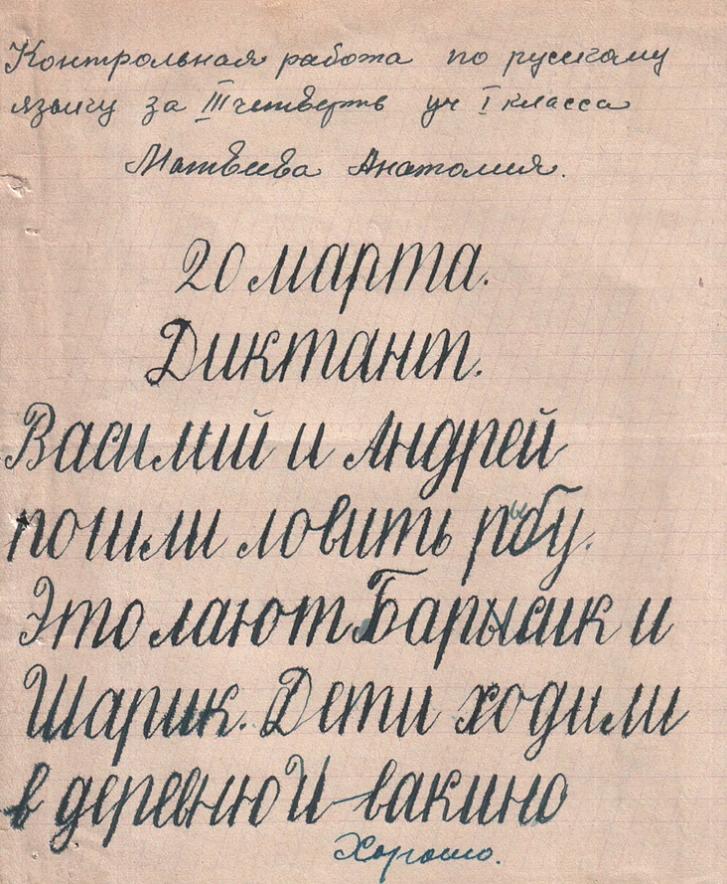 Контрольная работа по русскому
языку за III четверть уч I класса
Матвеева Анатолия.
20 марта.
Диктант.
Василий и Андрей
пошли ловить рыбу.
Это лают Барысик и
Шарик. Дети ходили
в деревню И-вакино
Хорошо.